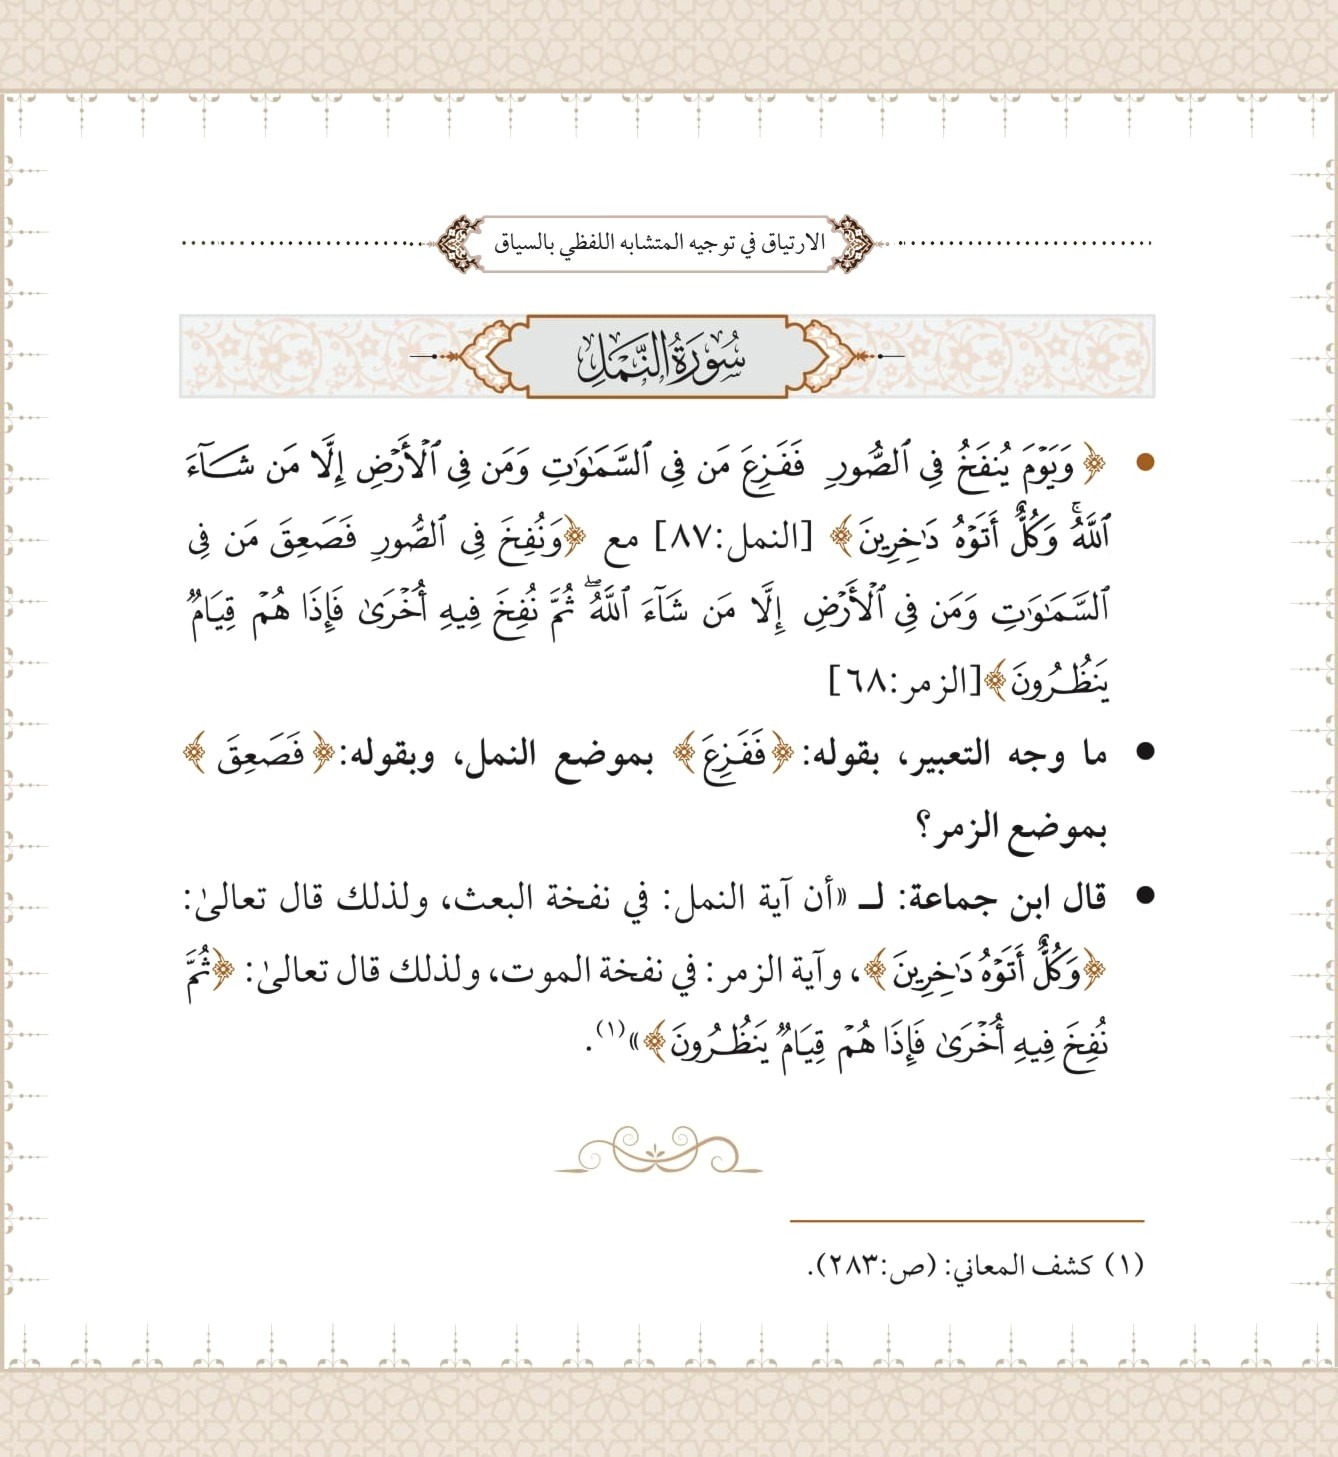 الارتياق في توجيه المتشابه اللفظي بالسياق
سُورَةُ النَّمْلِ
• ﴿ وَيَوْمَ يُنفَخُ فِي ٱلصُّورِ فَفَزِعَ مَن فِي ٱلسَّمَٰوَٰتِ وَمَن فِي ٱلْأَرْضِ إِلَّا مَن شَآءَ
ٱللَّهُۚ وَكُلٌّ أَتَوْهُ دَٰخِرِينَ﴾ [النمل:٨٧] مع ﴿وَنُفِخَ فِي ٱلصُّورِ فَصَعِقَ مَن فِي
ٱلسَّمَٰوَٰتِ وَمَن فِي ٱلْأَرْضِ إِلَّا مَن شَآءَ ٱللَّهُۖ ثُمَّ نُفِخَ فِيهِ أُخْرَىٰ فَإِذَا هُمْ قِيَامٌ
يَنظُرُونَ﴾[الزمر:٦٨]
• ما وجه التعبير، بقوله: ﴿فَفَزِعَ﴾ بموضع النمل، وبقوله: ﴿فَصَعِقَ ﴾
بموضع الزمر؟
• قال ابن جماعة: لـ «أن آية النمل: في نفخة البعث، ولذلك قال تعالىٰ:
﴿وَكُلٌّ أَتَوْهُ دَٰخِرِينَ﴾، وآية الزمر: في نفخة الموت، ولذلك قال تعالىٰ: ﴿ثُمَّ
نُفِخَ فِيهِ أُخْرَىٰ فَإِذَا هُمْ قِيَامٌ يَنظُرُونَ﴾»(١).
(١) كشف المعاني: (ص:٢٨٣).